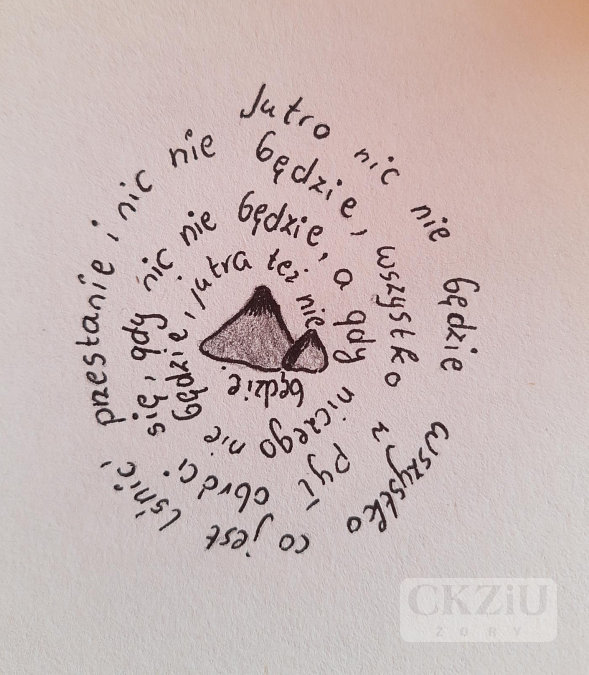 Jutro nic nie będzie wszystko co jest lśnić przestanie i nic nie będzie, wszystko z pył obróci się, gdy nic nie będzie, a gdy niczego nie będzie, jutra też nie będzie
CKZiU
ŻORY